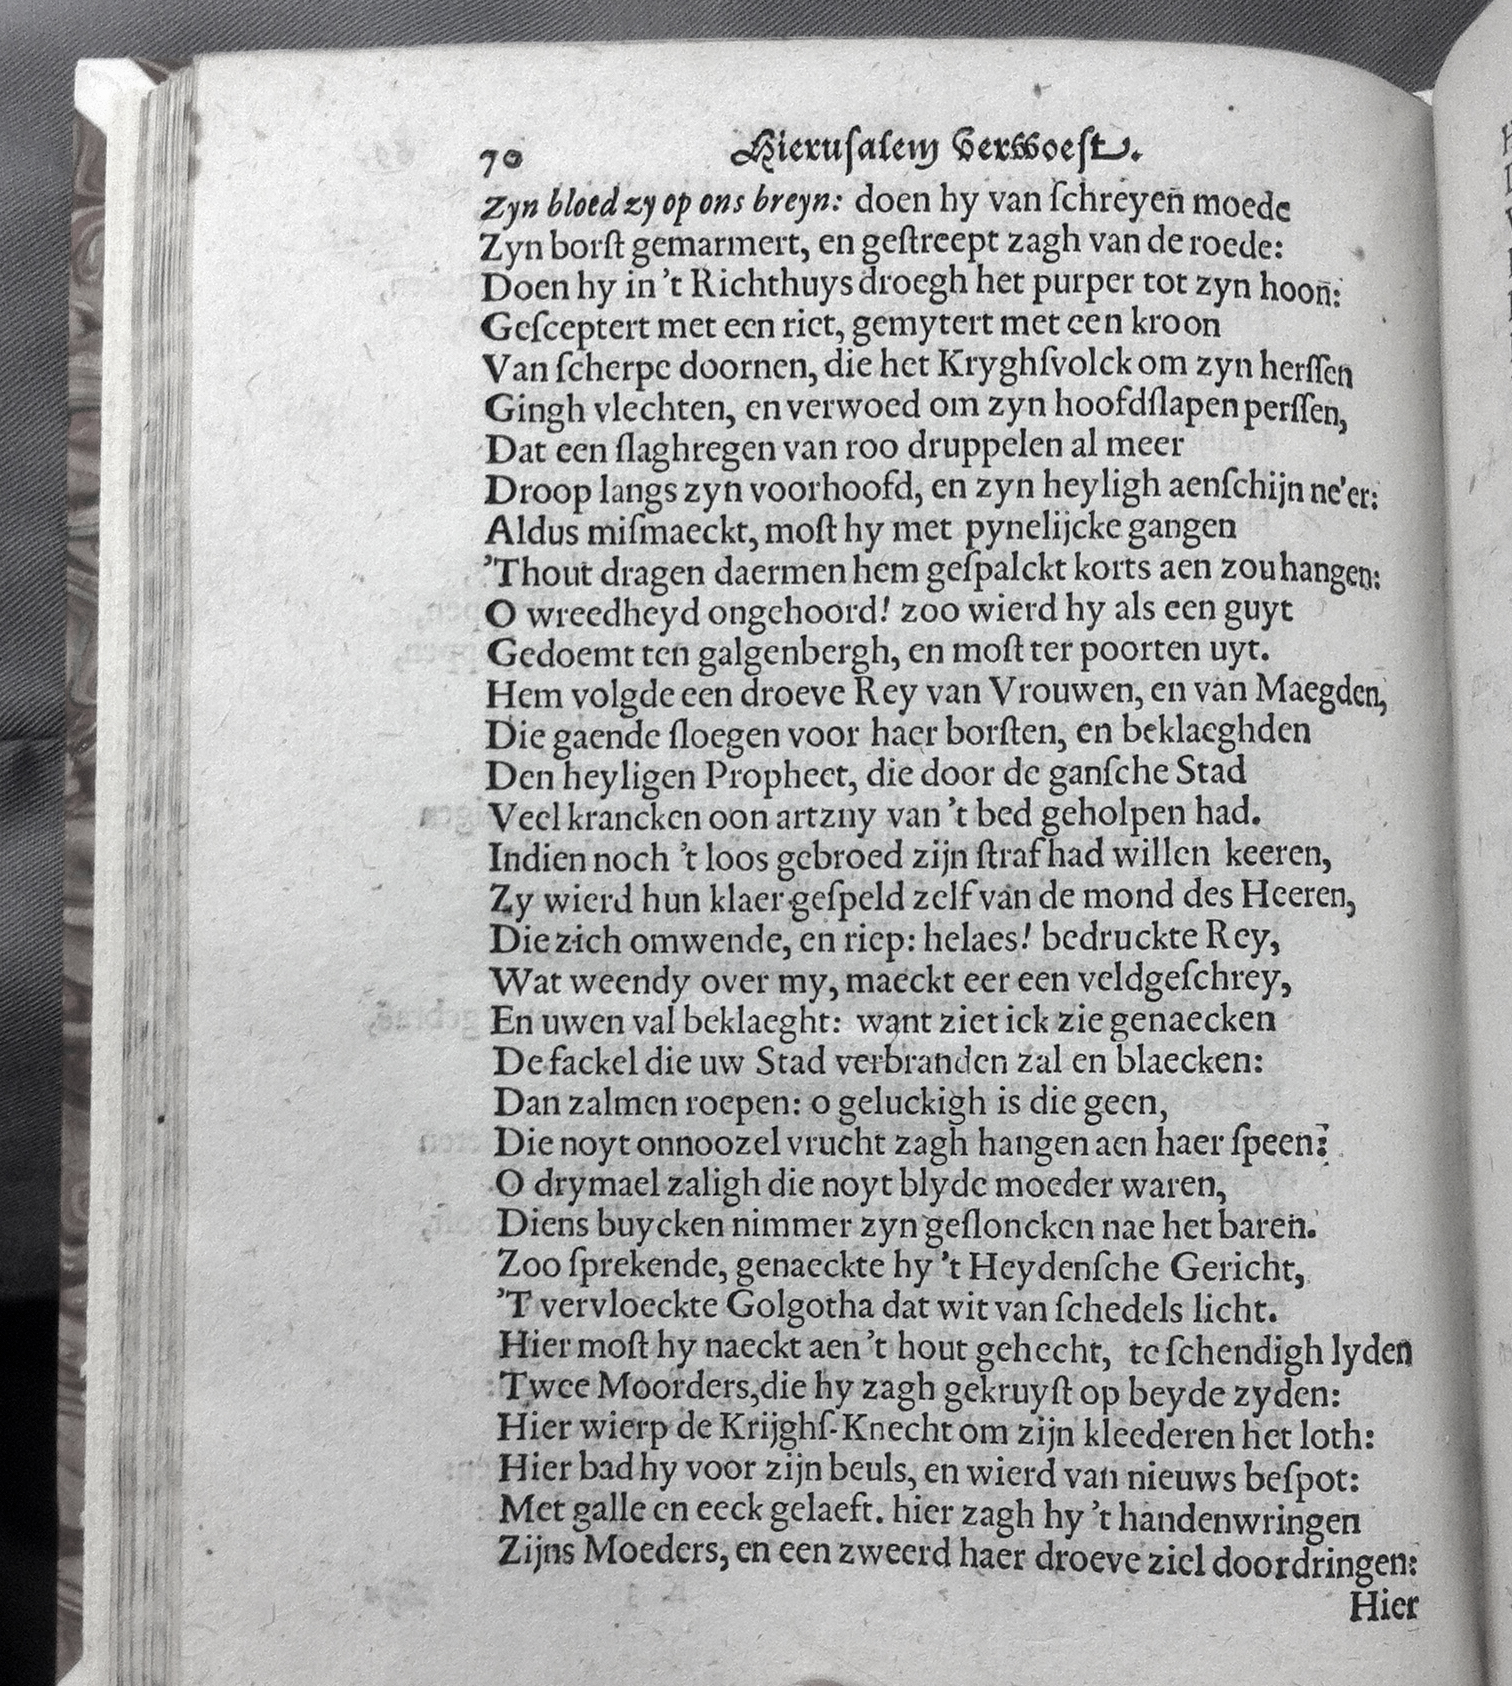 70 Hierusalem Verwoest.
Zyn bloed zy op ons breyn: doen hy van ſchreyen moede
Zyn borſt gemarmert, en geſtreept zagh van de roede:
Doen hy in 't Richthuys droegh het purper tot zyn hoon:
Geſceptert met een riet, gemytert met een kroon
Van ſcherpe doornen, die het Kryghſvolck om zyn herſſen
Gingh vlechten, en verwoed om zyn hoofdſlapen perſſen,
Dat een ſlaghregen van roo druppelen al meer
Droop langs zyn voorhoofd, en zyn heyligh aenſchijn ne'er:
Aldus miſmaeckt, moſt hy met pynelijcke gangen
'Thout dragen daermen hem geſpalckt korts aen zou hangen:
O wreedheyd ongehoord! zoo wierd hy als een guyt
Gedoemt ten galgenbergh, en moſt ter poorten uyt.
Hem volgde een droeve Rey van Vrouwen, en van Maegden,
Die gaende ſloegen voor haer borſten, en beklaeghden
Den heyligen Propheet, die door de ganſche Stad
Veel krancken oon artzny van 't bed geholpen had.
Indien noch 't loos gebroed zijn ſtraf had willen keeren,
Zy wierd hun klaer geſpeld zelf van de mond des Heeren,
Die zich omwende, en riep: helaes! bedruckte Rey,
Wat weendy over my, maeckt eer een veldgeſchrey,
En uwen val beklaeght: want ziet ick zie genaecken
De fackel die uw Stad verbranden zal en blaecken:
Dan zalmen roepen: o geluckigh is die geen,
Die noyt onnoozel vrucht zagh hangen aen haer ſpeen:
O drymael zaligh die noyt blyde moeder waren,
Diens buycken nimmer zyn geſloncken nae het baren.
Zoo ſprekende, genaeckte hy 't Heydenſche Gericht,
'T vervloeckte Golgotha dat wit van ſchedels licht.
Hier moſt hy naeckt aen 't hout gehecht, te ſchendigh lyden
Twee Moorders, die hy zagh gekruyſt op beyde zyden:
Hier wierp de Krijghſ-Knecht om zijn kleederen het loth:
Hier bad hy voor zijn beuls, en wierd van nieuws beſpot:
Met galle en eeck gelaeft. hier zagh hy 't handenwringen
Zijns Moeders, en een zweerd haer droeve ziel doordringen:
Hier